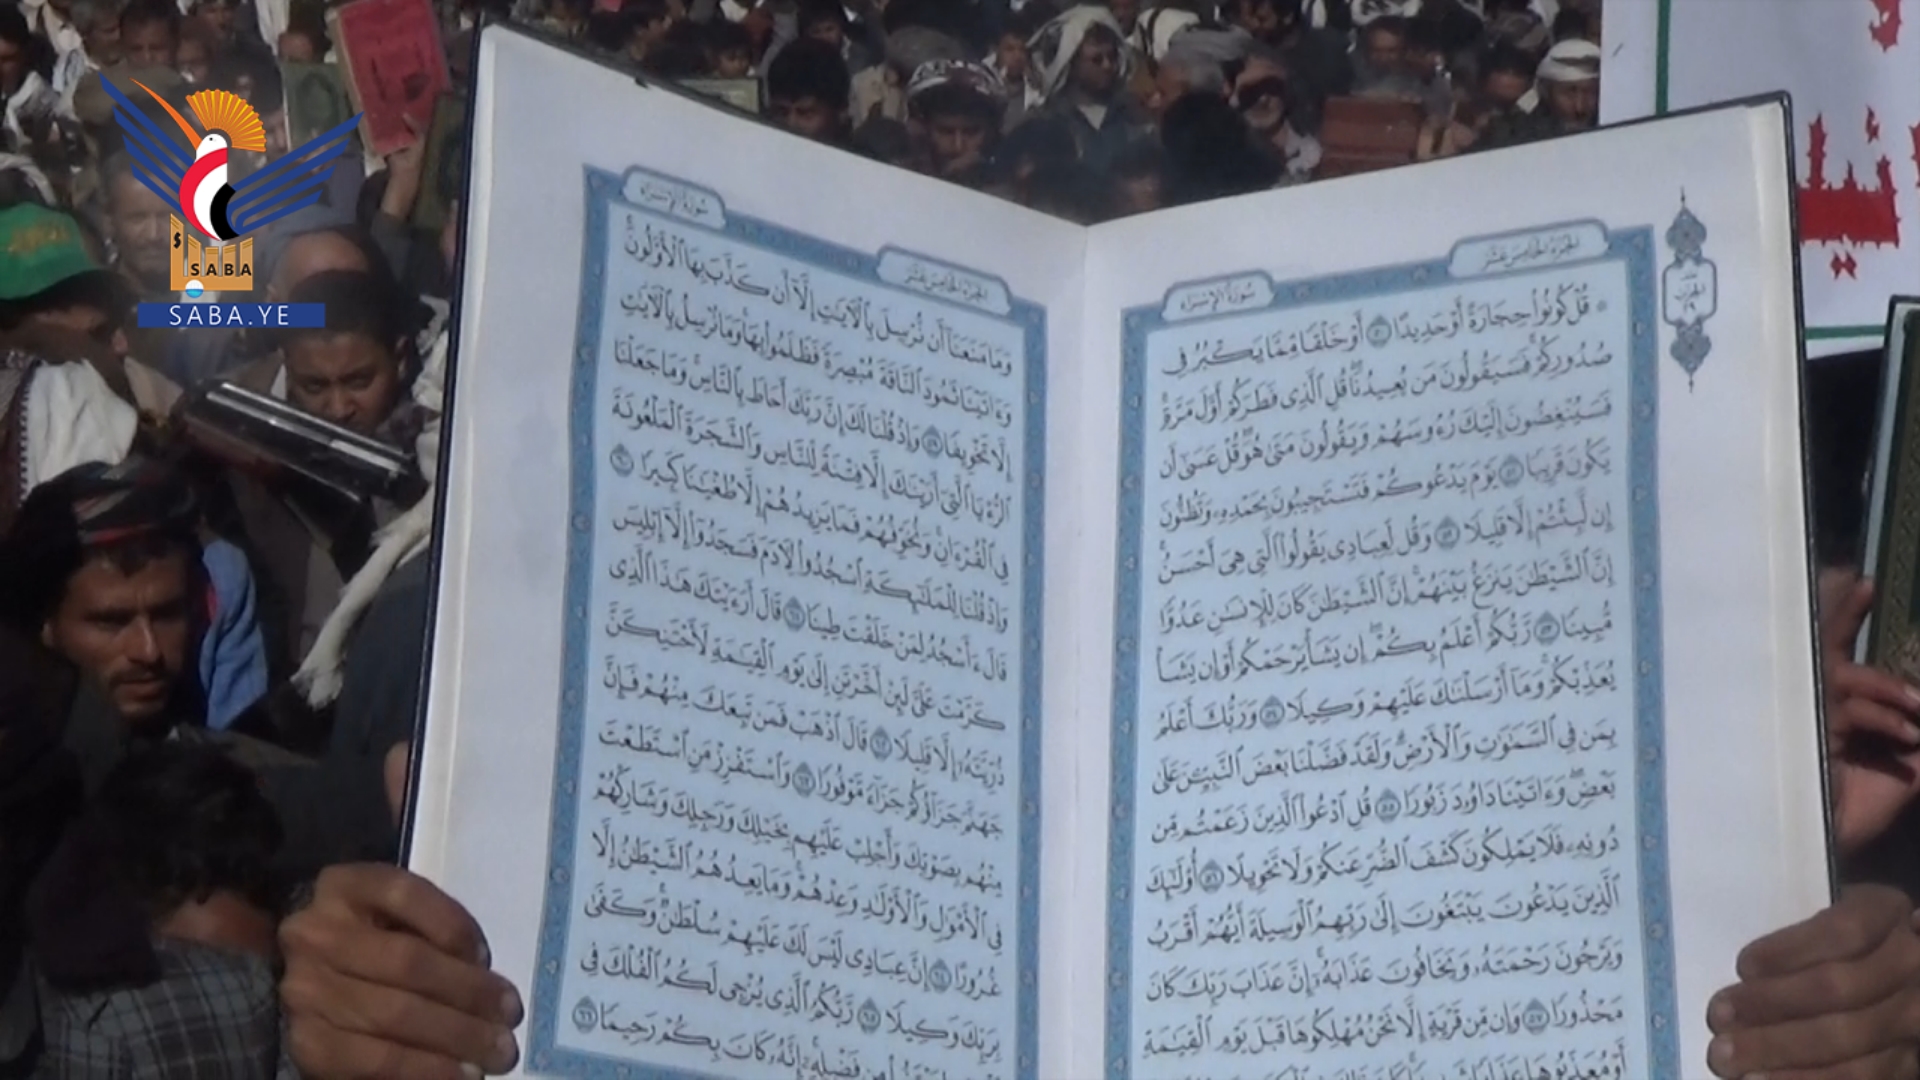 SABA
SABA.YE
سُورَةُ الإِسْرَاءِ
الجُزْءُ الخَامِسَ عَشَرَ
۞ قُلْ كُونُوا۟ حِجَارَةً أَوْ حَدِيدًا ۝٥٠ أَوْ خَلْقًا مِّمَّا يَكْبُرُ فِى
صُدُورِكُمْ ۚ فَسَيَقُولُونَ مَن يُعِيدُنَا ۖ قُلِ ٱلَّذِى فَطَرَكُمْ أَوَّلَ مَرَّةٍ ۚ
فَسَيُنْغِضُونَ إِلَيْكَ رُءُوسَهُمْ وَيَقُولُونَ مَتَىٰ هُوَ ۖ قُلْ عَسَىٰٓ أَن
يَكُونَ قَرِيبًا ۝٥١ يَوْمَ يَدْعُوكُمْ فَتَسْتَجِيبُونَ بِحَمْدِهِۦ وَتَظُنُّونَ
إِن لَّبِثْتُمْ إِلَّا قَلِيلًا ۝٥٢ وَقُل لِّعِبَادِى يَقُولُوا۟ ٱلَّتِى هِىَ أَحْسَنُ ۚ
إِنَّ ٱلشَّيْطَٰنَ يَنزَغُ بَيْنَهُمْ ۚ إِنَّ ٱلشَّيْطَٰنَ كَانَ لِلْإِنسَٰنِ عَدُوًّا
مُّبِينًا ۝٥٣ رَّبُّكُمْ أَعْلَمُ بِكُمْ ۖ إِن يَشَأْ يَرْحَمْكُمْ أَوْ إِن يَشَأْ
يُعَذِّبْكُمْ ۚ وَمَآ أَرْسَلْنَٰكَ عَلَيْهِمْ وَكِيلًا ۝٥٤ وَرَبُّكَ أَعْلَمُ
بِمَن فِى ٱلسَّمَٰوَٰتِ وَٱلْأَرْضِ ۗ وَلَقَدْ فَضَّلْنَا بَعْضَ ٱلنَّبِيِّـۧنَ عَلَىٰ
بَعْضٍ ۖ وَءَاتَيْنَا دَاوُۥدَ زَبُورًا ۝٥٥ قُلِ ٱدْعُوا۟ ٱلَّذِينَ زَعَمْتُم مِّن
دُونِهِۦ فَلَا يَمْلِكُونَ كَشْفَ ٱلضُّرِّ عَنكُمْ وَلَا تَحْوِيلًا ۝٥٦ أُو۟لَٰٓئِكَ
ٱلَّذِينَ يَدْعُونَ يَبْتَغُونَ إِلَىٰ رَبِّهِمُ ٱلْوَسِيلَةَ أَيُّهُمْ أَقْرَبُ
وَيَرْجُونَ رَحْمَتَهُۥ وَيَخَافُونَ عَذَابَهُۥٓ ۚ إِنَّ عَذَابَ رَبِّكَ كَانَ
مَحْذُورًا ۝٥٧ وَإِن مِّن قَرْيَةٍ إِلَّا نَحْنُ مُهْلِكُوهَا قَبْلَ يَوْمِ ٱلْقِيَٰمَةِ
أَوْ مُعَذِّبُوهَا عَذَابًا
سُورَةُ الإِسْرَاءِ
الجُزْءُ الخَامِسَ عَشَرَ
وَمَا مَنَعَنَآ أَن نُّرْسِلَ بِٱلْـَٔايَٰتِ إِلَّآ أَن كَذَّبَ بِهَا ٱلْأَوَّلُونَ ۚ
وَءَاتَيْنَا ثَمُودَ ٱلنَّاقَةَ مُبْصِرَةً فَظَلَمُوا۟ بِهَا ۚ وَمَا نُرْسِلُ بِٱلْـَٔايَٰتِ
إِلَّا تَخْوِيفًا ۝٥٩ وَإِذْ قُلْنَا لَكَ إِنَّ رَبَّكَ أَحَاطَ بِٱلنَّاسِ ۚ وَمَا جَعَلْنَا
ٱلرُّءْيَا ٱلَّتِىٓ أَرَيْنَٰكَ إِلَّا فِتْنَةً لِّلنَّاسِ وَٱلشَّجَرَةَ ٱلْمَلْعُونَةَ
فِى ٱلْقُرْءَانِ ۚ وَنُخَوِّفُهُمْ فَمَا يَزِيدُهُمْ إِلَّا طُغْيَٰنًا كَبِيرًا ۝٦٠
وَإِذْ قُلْنَا لِلْمَلَٰٓئِكَةِ ٱسْجُدُوا۟ لِـَٔادَمَ فَسَجَدُوٓا۟ إِلَّآ إِبْلِيسَ
قَالَ ءَأَسْجُدُ لِمَنْ خَلَقْتَ طِينًا ۝٦١ قَالَ أَرَءَيْتَكَ هَٰذَا ٱلَّذِى
كَرَّمْتَ عَلَىَّ لَئِنْ أَخَّرْتَنِ إِلَىٰ يَوْمِ ٱلْقِيَٰمَةِ لَأَحْتَنِكَنَّ
ذُرِّيَّتَهُۥٓ إِلَّا قَلِيلًا ۝٦٢ قَالَ ٱذْهَبْ فَمَن تَبِعَكَ مِنْهُمْ فَإِنَّ
جَهَنَّمَ جَزَآؤُكُمْ جَزَآءً مَّوْفُورًا ۝٦٣ وَٱسْتَفْزِزْ مَنِ ٱسْتَطَعْتَ
مِنْهُم بِصَوْتِكَ وَأَجْلِبْ عَلَيْهِم بِخَيْلِكَ وَرَجِلِكَ وَشَارِكْهُمْ
فِى ٱلْأَمْوَٰلِ وَٱلْأَوْلَٰدِ وَعِدْهُمْ ۚ وَمَا يَعِدُهُمُ ٱلشَّيْطَٰنُ إِلَّا
غُرُورًا ۝٦٤ إِنَّ عِبَادِى لَيْسَ لَكَ عَلَيْهِمْ سُلْطَٰنٌ ۚ وَكَفَىٰ
بِرَبِّكَ وَكِيلًا ۝٦٥ رَّبُّكُمُ ٱلَّذِى يُزْجِى لَكُمُ ٱلْفُلْكَ فِى
مِن فَضْلِهِۦٓ ۚ إِنَّهُۥ كَانَ بِكُمْ رَحِيمًا ۝٦٦